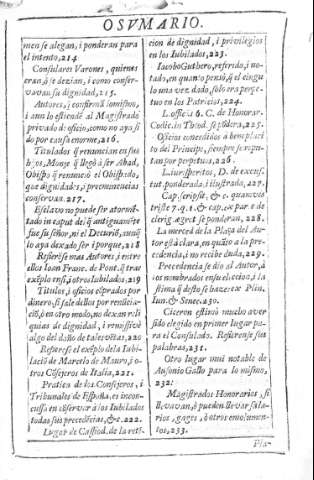 OSVMARIO.
men se alegan, i ponderan para
el intento, 214
Consulares Varones, quienes
eran, ò se dezian, i como conser-
vavan su dignidad, 215.
Autores, i confirmã lo mismo,
i aun lo estiendē al Magistrado
privado de oficio, como no aya si-
do por causa enorme, 216.
Titulados q̃ renuncian en sus
hijos, Monje q̃ llegò à ser Abad,
Obispo q̃ renunciò el Obispado,
que dignidades, i preeminencias
conservan. 217.
Esclavo no puede ser atormē-
tado in caput del q̃ antiguamēte
fue su señor, ni el Decuriõ, aunq̃
lo aya dexado ser i porque, 218
Refierēse mas Autores, i entre
ellos Ioan Franc. de Pont. q̃ trae
exēplo en sì, i otros Iubilados, 219
Titulos, i oficios cõprados por
dinero, si sale dellos por renūcia-
ciõ, i en otro modo, no dexan reli
quias de dignidad, i
algo del daño de tales vētas, 220
Refierese el exēplo de la Iubi-
laciõ de Marcelo de Mauro, i o-
tros Cõsejeros de Italia, 221.
Pratica de los Consejeros, i
Tribunales de España, es incon-
cussa en cõservar à los Iubilados
todas sus precedēcias, &c. 222.
Lugar de Cassiod. de la reti-
cion de dignidad, i privilegios
en los Iubilados, 223.
Iacobo Guthero, referido, i no-
tado, en quanto pensò, q̃ el cingu
lo una vez dado, sòlo era perpe-
tuo en los Patricios, 224.
L. officia 6. C. de Honorar.
Codicil. in Theod. se põdera, 225.
Oficio concedido à beneplaci
to del Principe, siempre se repu-
tan por perpetuos, 226.
L. iurisperitos, D. de excus.
tut. ponderada, i ilustrada, 227.
Cap. scripsit, & c. quamvis
triste 7. q. 1. & cap. ex par. 1. de
cleric. ægrot. se ponderan, 228.
La merced de la Plaça del Au-
tor està clara, en quãto a la pre-
cedencia, i no recibe duda, 229.
Precedencia se diò al Autor, à
los nombrados en su eleccion, i la
stima q̃ desto se haze en Plin,
Iun. & Senec. 230.
Ciceron estimò mucho aver
sido elegido en primer lugar pa-
ra el Consulado. Refierense sus
palabras, 231.
Otro lugar mui notable de
Ausonio Gallo para lo mismo,
232:
Magistrados Honorarios, si
llevavan, ò pueden llevar sala-
rios, gages, ò otros emolumen-
tos, 233.
Pla-